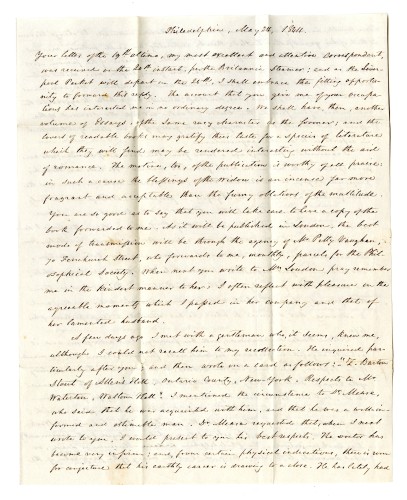 Philadelphia, May 24, 1844.
Your letter of the 19th ultimo, my most excellent and attentive correspondent,
was received on the 20th instant, per the Britannia Steamer; and as the Liver-
pool Packet will depart on the 25th, I shall embrace the fitting opportu-
nity to forward this reply. The account that you give me of your occupa-
tions has interested me in no ordinary degree. We shall have, then, another
volume of Essays of the same racy character as the former; and the
lovers of readable books may gratify their taste for a species of literature
which they will find may be rendered interesting without the aid
of romance. The motive, too, of the publication is worthy of all praise:
in such a cause the blessings of the widow is an incense far more
fragrant and acceptable than the fuming oblations of the multitude.
You are so good as to say that you will take care to have a copy of the
book forwarded to me. As it will be published in London, the best
mode of transmission will be through the agency of Mr Petty Vaughan,
70 Fenchurch Street, who forwards to me, monthly, parcels for the Phil-
osophical Society. When next you write to Mrs Loudon pray remember
me in the kindest manner to her. I often reflect with pleasure on the
agreeable moments which I passed in her company and that of
her lamented husband.
A few days ago I met with a gentleman who, it seems, knew me,
although I could not recall him to my recollection. He inquired par-
ticularly after you; and then wrote on a card as follows: "Z. Barton
Stout of Allen's Hill, Ontario County, New-York, Respects to Mr
Waterton, Walton Hall". I mentioned the circumstance to Dr Mease,
who said that he was acquainted with him, and that he was a well-in-
formed and estimable man. Dr Mease requested that, when I next
wrote to you, I would present to you his best respects. The doctor has
become very infirm; and, from certain physical indications, there is room
for conjecture that his earthly career is drawing to a close. He has lately had